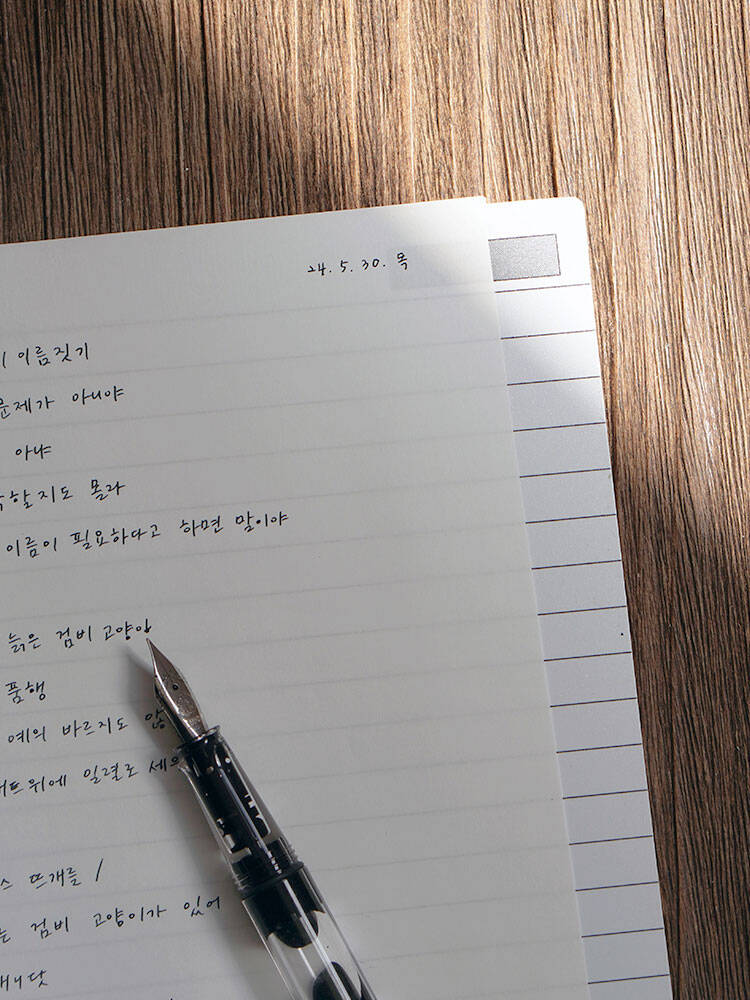 24. 5. 30. 목
이름짓기
문제가 아니야
아냐
할지도 몰라
이름이 필요하다고 하면 말이야
늙은 검비 고양이
품행
예의 바르지도
일렬로
뜨개를
검비 고양이가 있어